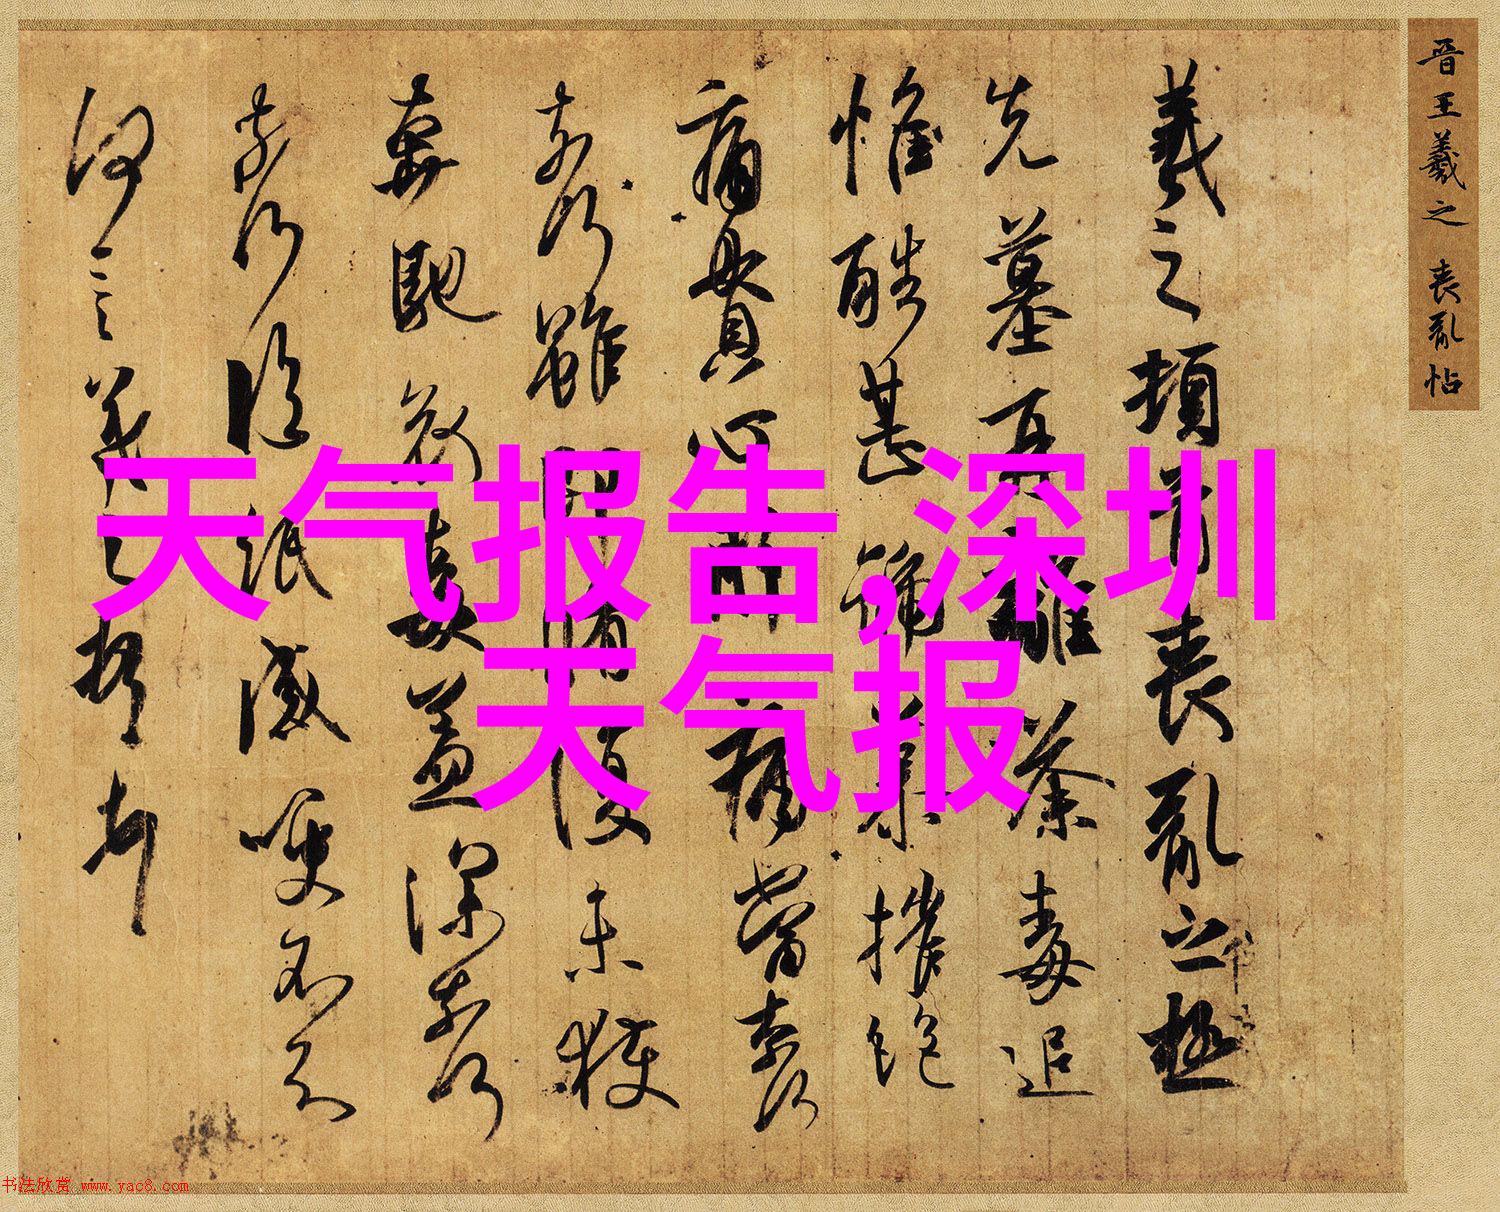 天气报告,深圳
天气报
晋王羲之 丧乱帖
羲之顿首丧乱之极
先墓再離荼毒追
惟酷甚號慕摧絶
痛貫心肝痛當奈何
奈何雖即脩復未獲
奔馳哀毒益深奈何
奈何臨紙感哽不知
何言羲之頓首頓首
书法欣赏 www.yac8.com